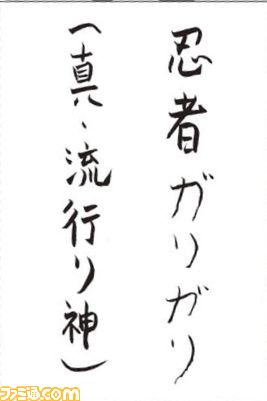 忍者ガリガリ
(真・流行り神)
ファミ通.com